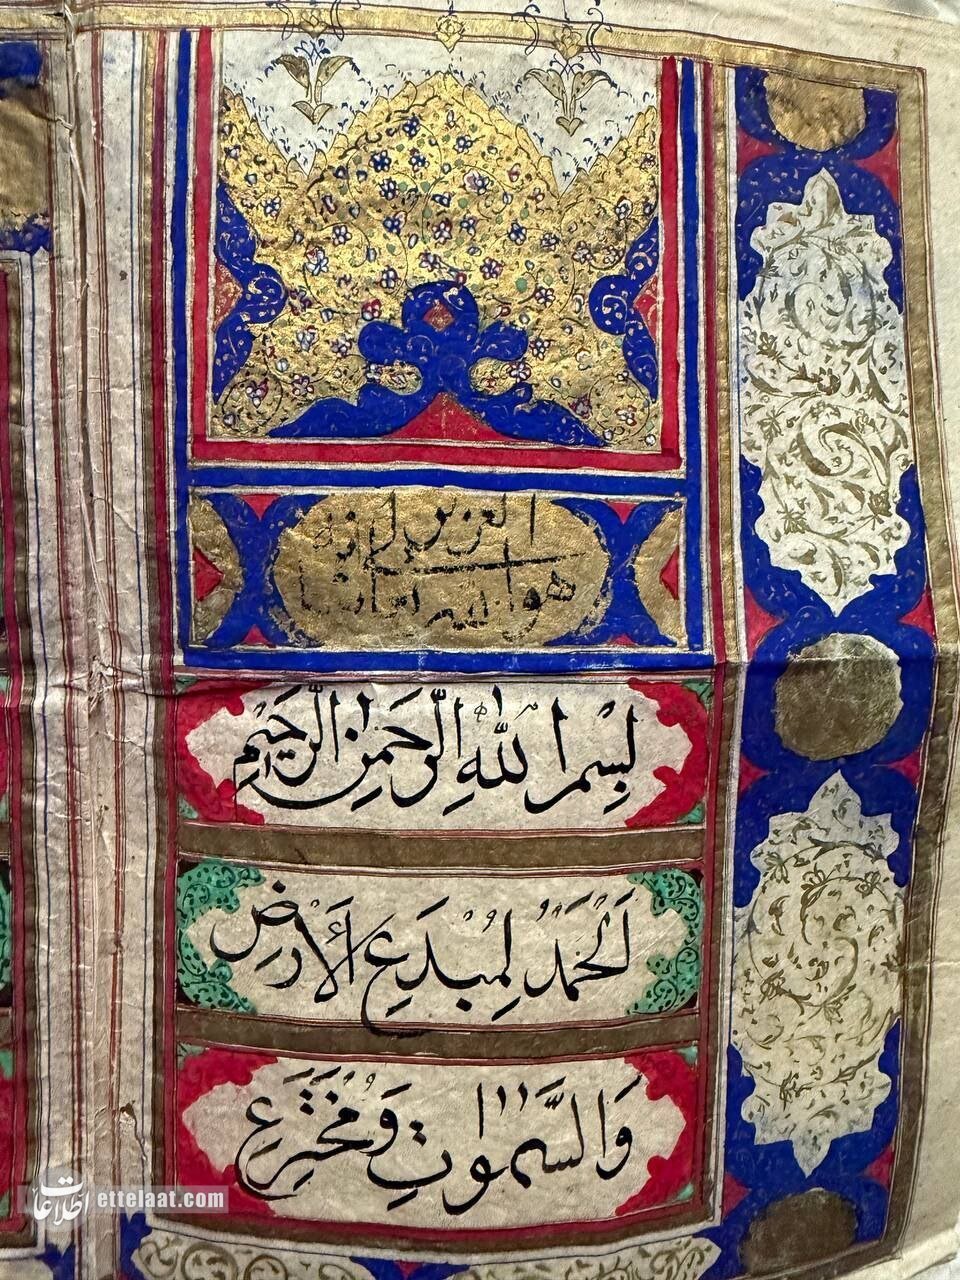 العزیز
هو الله تعالی شانه
بِسْمِ اللّٰهِ الرَّحْمٰنِ الرَّحِيْمِ
اَلْحَمْدُ لِمُبْدَعِ الْأَرْضِ
وَالسَّمٰوٰتِ وَمُخْتَرِعِ
اطلاعات ettelaat.com